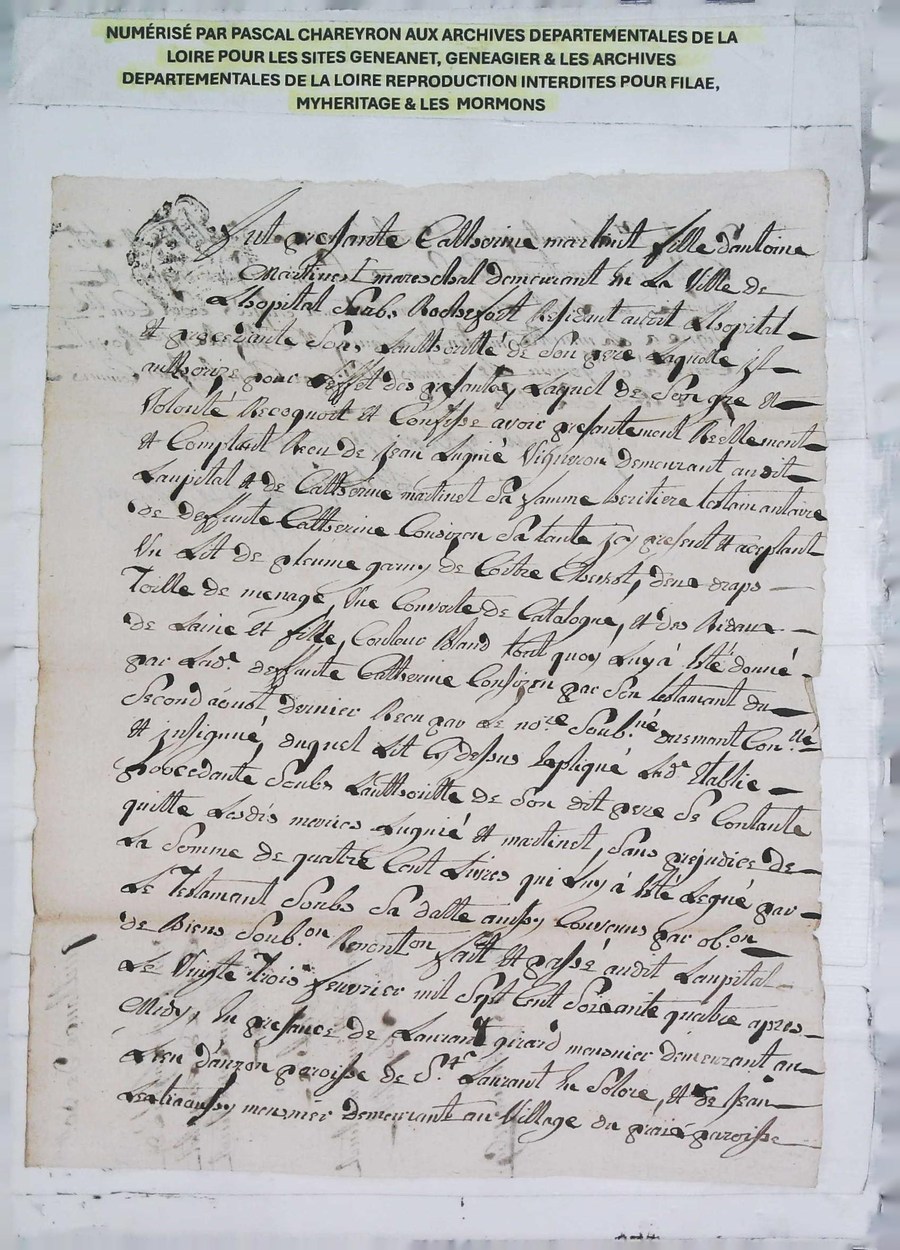 NUMÉRISÉ PAR PASCAL CHAREYRON AUX ARCHIVES DEPARTEMENTALES DE LA
LOIRE POUR LES SITES GENEANET, GENEAGIER & LES ARCHIVES
DEPARTEMENTALES DE LA LOIRE REPRODUCTION INTERDITES POUR FILAE,
MYHERITAGE & LES MORMONS
fut presante Catherine martinet fille d'antoine
Martinet mareschal demeurant en La Ville de
Lhopital Soubs Rochefort Residant audit Lhopital
et procedante Sous Lauthoritté de Son pere Laquelle
authorize pour L'effet des presantes Laquel de Son gre et
Volonté Recognoit et Confesse avoir presantement Reellement
et Comptant Receu de Jean Lugnié Vigneron demeurant audit
Laupital et de Catherine martinet Sa famme heritiere testamantaire
de deffunte Catherine Sa tante jcy present et aceptant
Un Lit de plume garny de Coitre Chevet, deux draps
Toille de menage, Une Converte de Catalogue, et des Rideaux
de Laine et fille, Couleur Bland tout quoy Luy à Esté donné
par Lade deffunte Catherine par Son testamant du
Second aoust dernier Receu par Le nore Soub.né
et jnsignué duquel Lit Cy dessus Expliqué Lade Etablie
procedante Soubs Lauthoritte de Son dit pere Se Contante
quitte Lesdis maries Lugnié et martinet, Sans prejudice de
La Somme de quatre Cent Livres qui Luy à Esté Legué par
Le Testamant Soubs Sa datte aussy Convenus par ob.on
de Biens Soub.on Renont.on fait et passé audit Laupital
Le Vingte Trois fevrier mil Sept Cent Soixante quatre apres
Midy, En presance de Laurant girard meusnier demeurant au
Lieu d'auzon paroisse de St Laurant En Solore, et de Jean
aussy meusnier demeurant au Village du paroisse